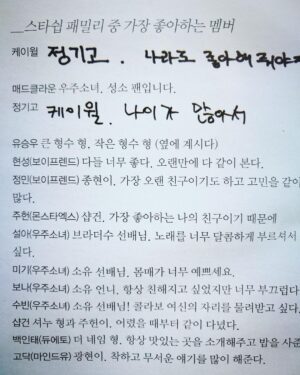 _스타쉽 패밀리 중 가장 좋아하는 멤버
케이윌 정기고. 나라도 좋아해줘야지
매드클라운 우주소녀. 성소 팬입니다.
정기고 케이윌. 나이가 많아서
유승우 큰 형수 형. 작은 형수 형 (옆에 계시다)
현성(보이프렌드) 다들 너무 좋다. 오랜만에 다 같이 본다.
정민(보이프렌드) 종현이. 가장 오랜 친구이기도 하고 고민을 같이
많다.
주헌(몬스타엑스) 샵건. 가장 좋아하는 나의 친구이기 때문에
설아(우주소녀) 브라더수 선배님. 노래를 너무 달콤하게 부르셔서
싶다.
미기(우주소녀) 소유 선배님. 몸매가 너무 예쁘세요.
보나(우주소녀) 소유 언니. 항상 친해지고 싶었지만 너무 부끄럽다
수빈(우주소녀) 소유 선배님! 콜라보 여신의 자리를 물려받고 싶다.
샵건 셔누 형과 주헌이. 어렸을 때부터 같이 다녔다.
백인태(듀에토) 더 네임 형. 항상 맛있는 곳을 소개해주고 밥을 사준
고닥(마인드유) 광현이. 착하고 무서운 얘기를 많이 해준다.